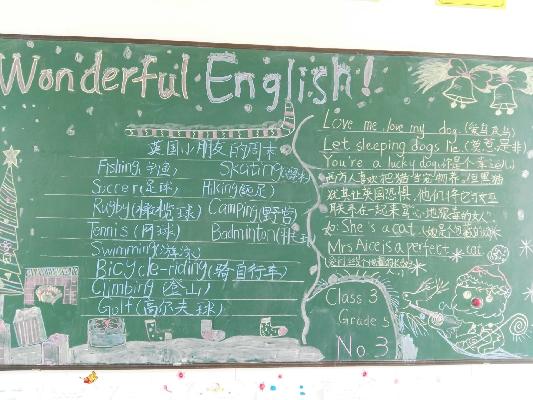 Wonderful English!
英国小朋友的周末
Fishing(钓鱼) Skating(滑冰)
Soccer(足球) Hiking(远足)
Rugby(橄榄球) Camping(野营)
Tennis(网球) Badminton(羽毛球)
Swimming(游泳)
Bicycle-riding(骑自行车)
Climbing(登山)
Golf(高尔夫球)
Love me, love my dog.(爱屋及乌)
Let sleeping dogs lie.(莫惹是非)
You're a lucky dog.
西方人喜欢把猫当宠物养,但黑猫
尤其让英国恐惧,他们将它与女巫
联系在一起
如: She's a cat
Mrs Alice is a perfect cat
Class 3
Grade 5
No 3